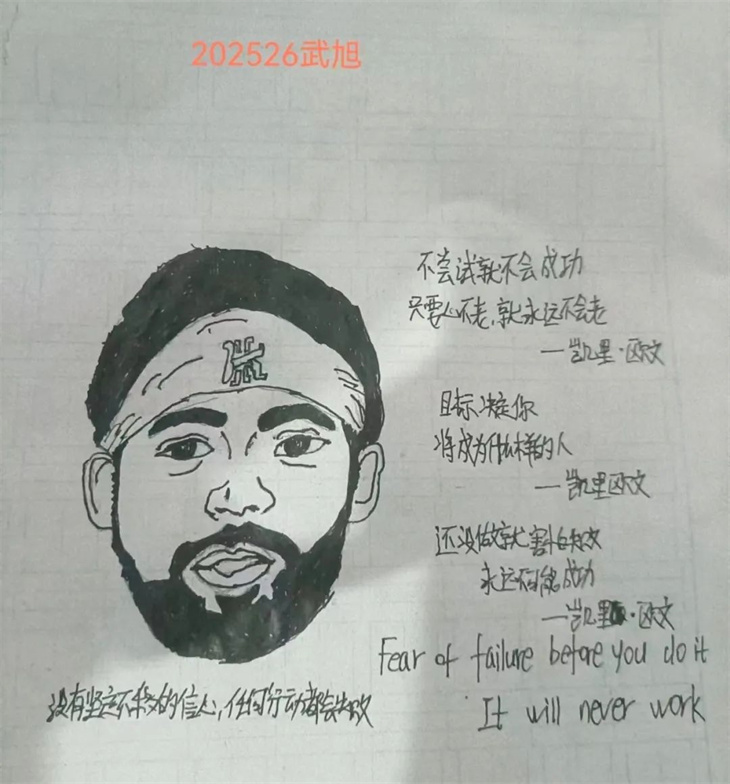 202526武旭
不尝试就不会成功
只要心不老,就永远不会老
—凯里·欧文
目标决定你
将成为什么样的人
—凯里欧文
还没做就害怕失败
永远不可能成功
—凯里·欧文
Fear of failure before you do it
It will never work
没有坚定不移的信心,任何行动都会失败